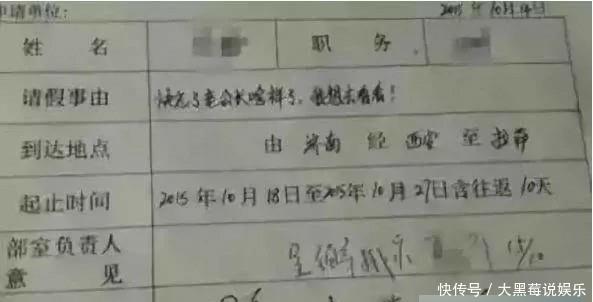 申请单位: 2015年10月14日
姓名 职务
请假事由 快忘了老公长啥样了,我想去看看!
到达地点 由 济南 经 西安 至 拉萨
起止时间 2015年10月18日至2015年10月27日含往返10天
部室负责人
意见 15/10
快传号/大黑莓说娱乐